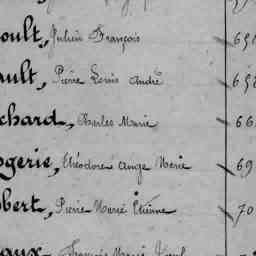 oult, Julien François 65
ault, Pierre Louis André 658
chard, Charles Marie 66
ogerie, Théodore Ange Marie 69
bert, Pierre Marie Étienne 70
aux, François Marie